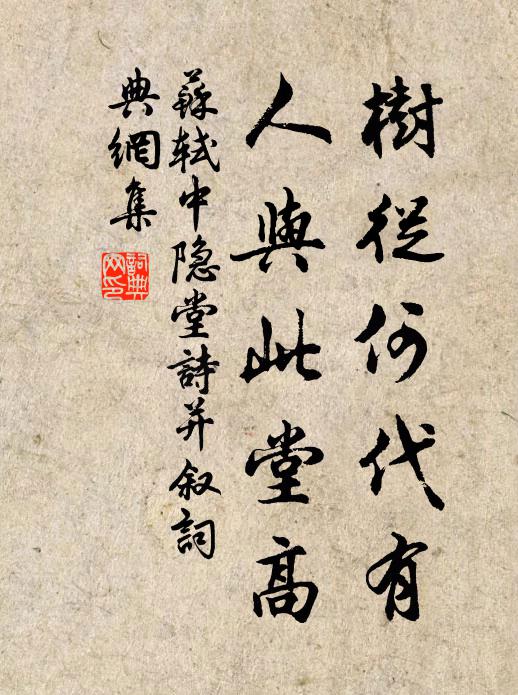 樹從何代有
人與此堂高
蘇軾中隐堂詩并叙詞
典網集
詞典
网印